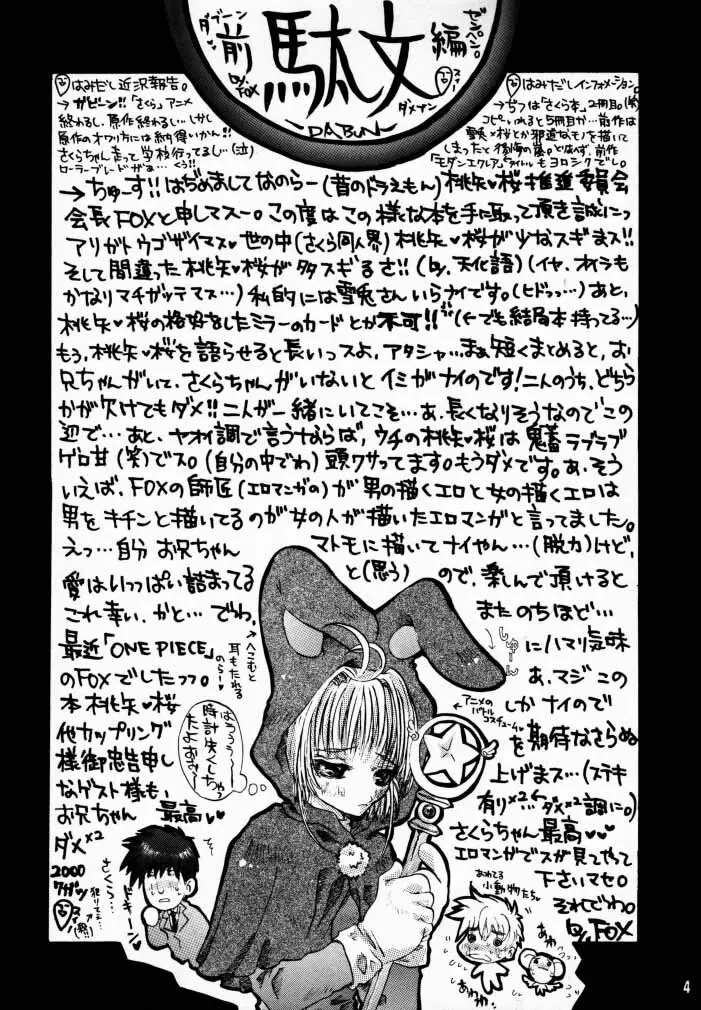 ダブーン
ゼンペン。
前 駄文 編
by.FOX
-DABUN-
ダメナン
はみだし近況報告。
→ガビーン!!「さくら」アニメ
終わるし、原作終わるし…しかし
原作のオワリ方には納得いかん!!
さくらちゃん走って学校行ってるし…(泣)
ローラーブレードがぁ…くぅ!!
はみだしインフォメーション。
→じつは「さくら本」2冊目。(笑)
コピー入れると5冊目か…前作は
雪兎♥桜とか邪道なモノを描いて
しまったと後悔の嵐。とはいえず、前作
「モダンエクレア」もヨロシクでし。
→ちゅーす!!はぢめましてなのらー(昔のドラえもん)桃矢♥桜推進委員会
会長FOXと申しマスー。この度はこの様な本を手に取って頂き誠にっ
アリガトウゴザイマス♥世の中(さくら同人界)桃矢♥桜が少なスギまス!!
そして間違った桃矢♥桜が多スギるさ!!(by.天化語)(イヤ、オイラも
かなりマチガッテマス…)私的には雪兎さんいらナイです。(ヒドっっ…)あと、
桃矢♥桜の格好をしたミラーのカードとか不可!!(←でも結局本持ってる…)
もう、桃矢♥桜を語らせると長いっスよ、アタシャ…まぁ短くまとめると、お
兄ちゃんがいて、さくらちゃんがいないとイミがナイのです!二人のうち、どちら
かが欠けてもダメ!!二人が一緒にいてこそ…あ、長くなりそうなのでこの
辺で…あと、ヤオイ調で言うならば、ウチの桃矢♥桜は鬼畜ラブラブ
ゲロ甘(笑)でス。(自分の中でわ)頭クサってます。もうダメです。あ、そう
いえば、FOXの師匠(エロマンガの)が男の描くエロと女の描くエロは
男をキチンと描いてるのが女の人が描いたエロマンガと言ってました。
えっ…自分 お兄ちゃん マトモに描いてナイやん…(脱力)けど、
愛はいっぱい詰まってる と(思う) ので、楽しんで頂けると
これ幸い、かと…でわ、 またのちほど…
最近「ONE PIECE」 にハマリ気味
のFOXでしたっっ。 あ、マジこの
本桃矢♥桜 しかナイので
他カップリング を期待なさらぬ
様御忠告申し 上げまス…(ステキ
なゲスト様も、 有り×2←ダメ×2調に。)
お兄ちゃん 最高♥ さくらちゃん最高♥♥
ダメ×2 エロマンガでスが見てやって
2000 下さいマセ。
7ガツ それでわ。
by.FOX
へこむと
耳もたれる
のらー
しゅーん
アニメの
バトル
コスチューム♥
はうぅぅ〜
時計失くしちゃっ
たよぉぉ〜
さくら…
ドキーン
あわてる
小動物たち
あわ
あわわ
4